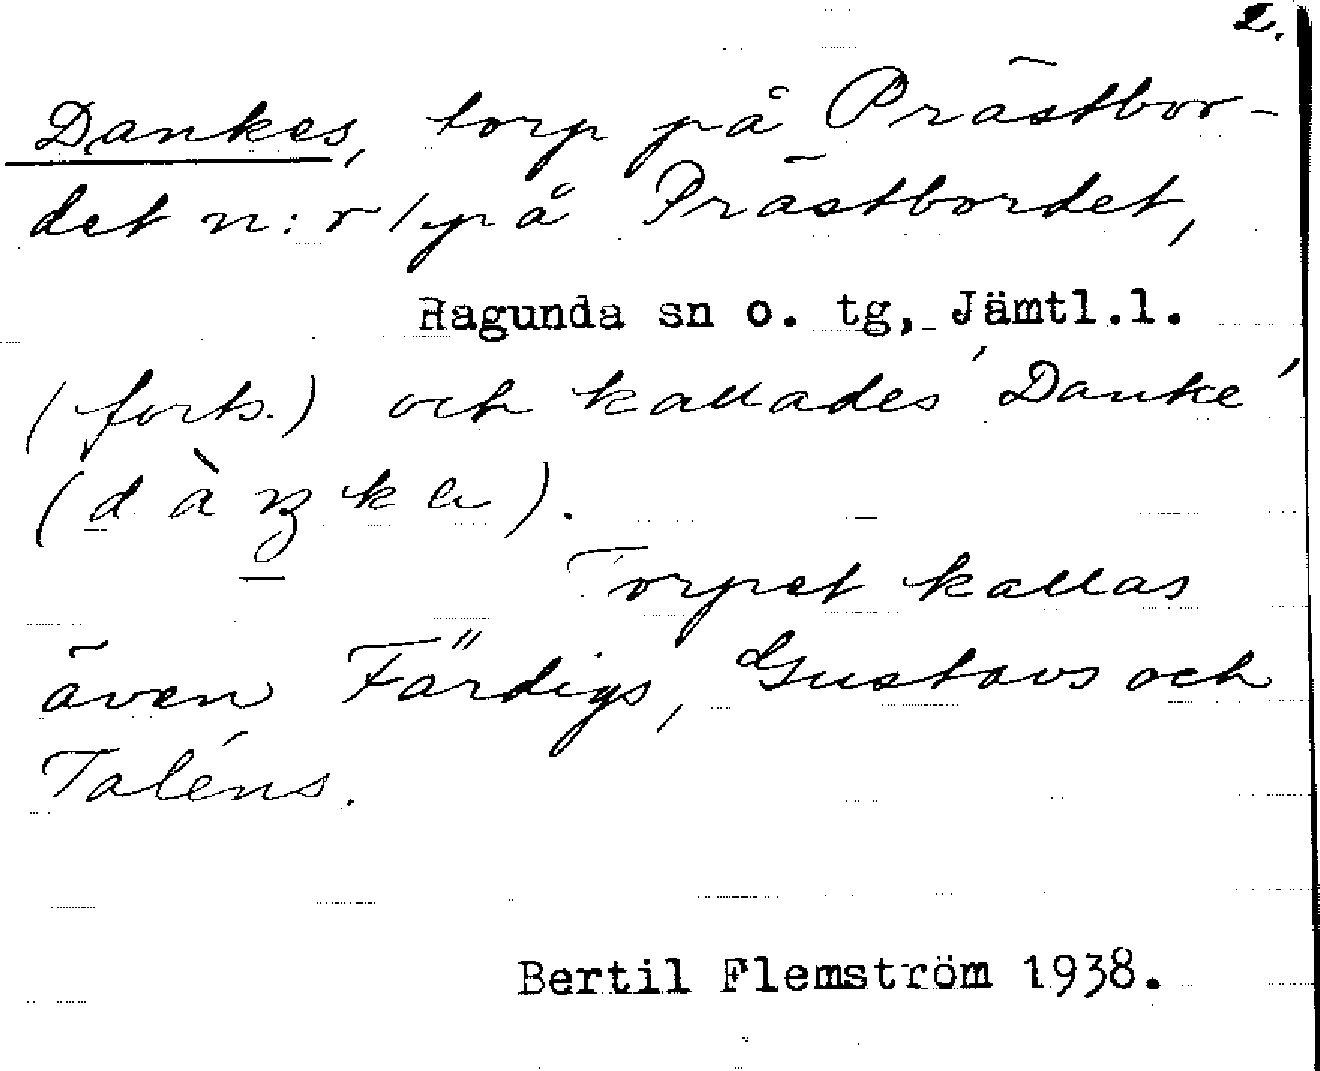 2.
Dankes, torp på Prästbor-
det n:r 1 på Prästbordet,
Ragunda sn o. tg, Jämtl.l.
(forts.) och kallades 'Danke'
(dàŋka).
Torpet kallas
även Färdigs, Gustavs och
Taléns.
Bertil Flemström 1938.